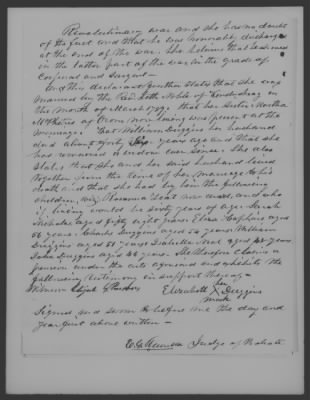 Revolutionary war and she has no doubt
of the fact and that he was honorably discharged
at the end of the war. She believes that he served
in the latter part of the war in the grade of
Corporal and Sargent.
And this declarant further states that she was
married by the Rev. Seth Noble of
the month of March 1792, that her Sister Martha
of Orono now living was present at the
marriage. That William Duggins her husband
died about forty six years ago and that she
has remained a widow ever since. She also
states that she and her said husband lived
together from the time of her marriage to his
death and that she had by him the following
children, viz, Rosanna that was and who
if living would be sixty years of age. Sarah
Nichols aged fifty eight years Eliza
56 years Charles Duggins aged 54 years William
Duggins aged 51 years Isabella Neal aged 48 years
John Duggins aged 46 years. She therefore claims a
pension under the act and exhibits the
following testimony in support thereof
Witness Elijah G.
Elizabeth her X mark Duggins
Signed and sworn to before me the day and
year first above written —
Judge of Probate